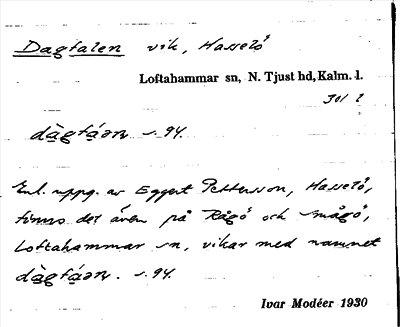 Dagtalen vik, Hasselö
Loftahammar sn, N. Tjust hd, Kalm. l.
s. 94.
Enl. uppg. av Eggert Pettersson, Hasselö,
finns det även på Rågö och Smågö,
Loftahammar sn, vikar med namnet
s. 94.
Ivar Modéer 1930